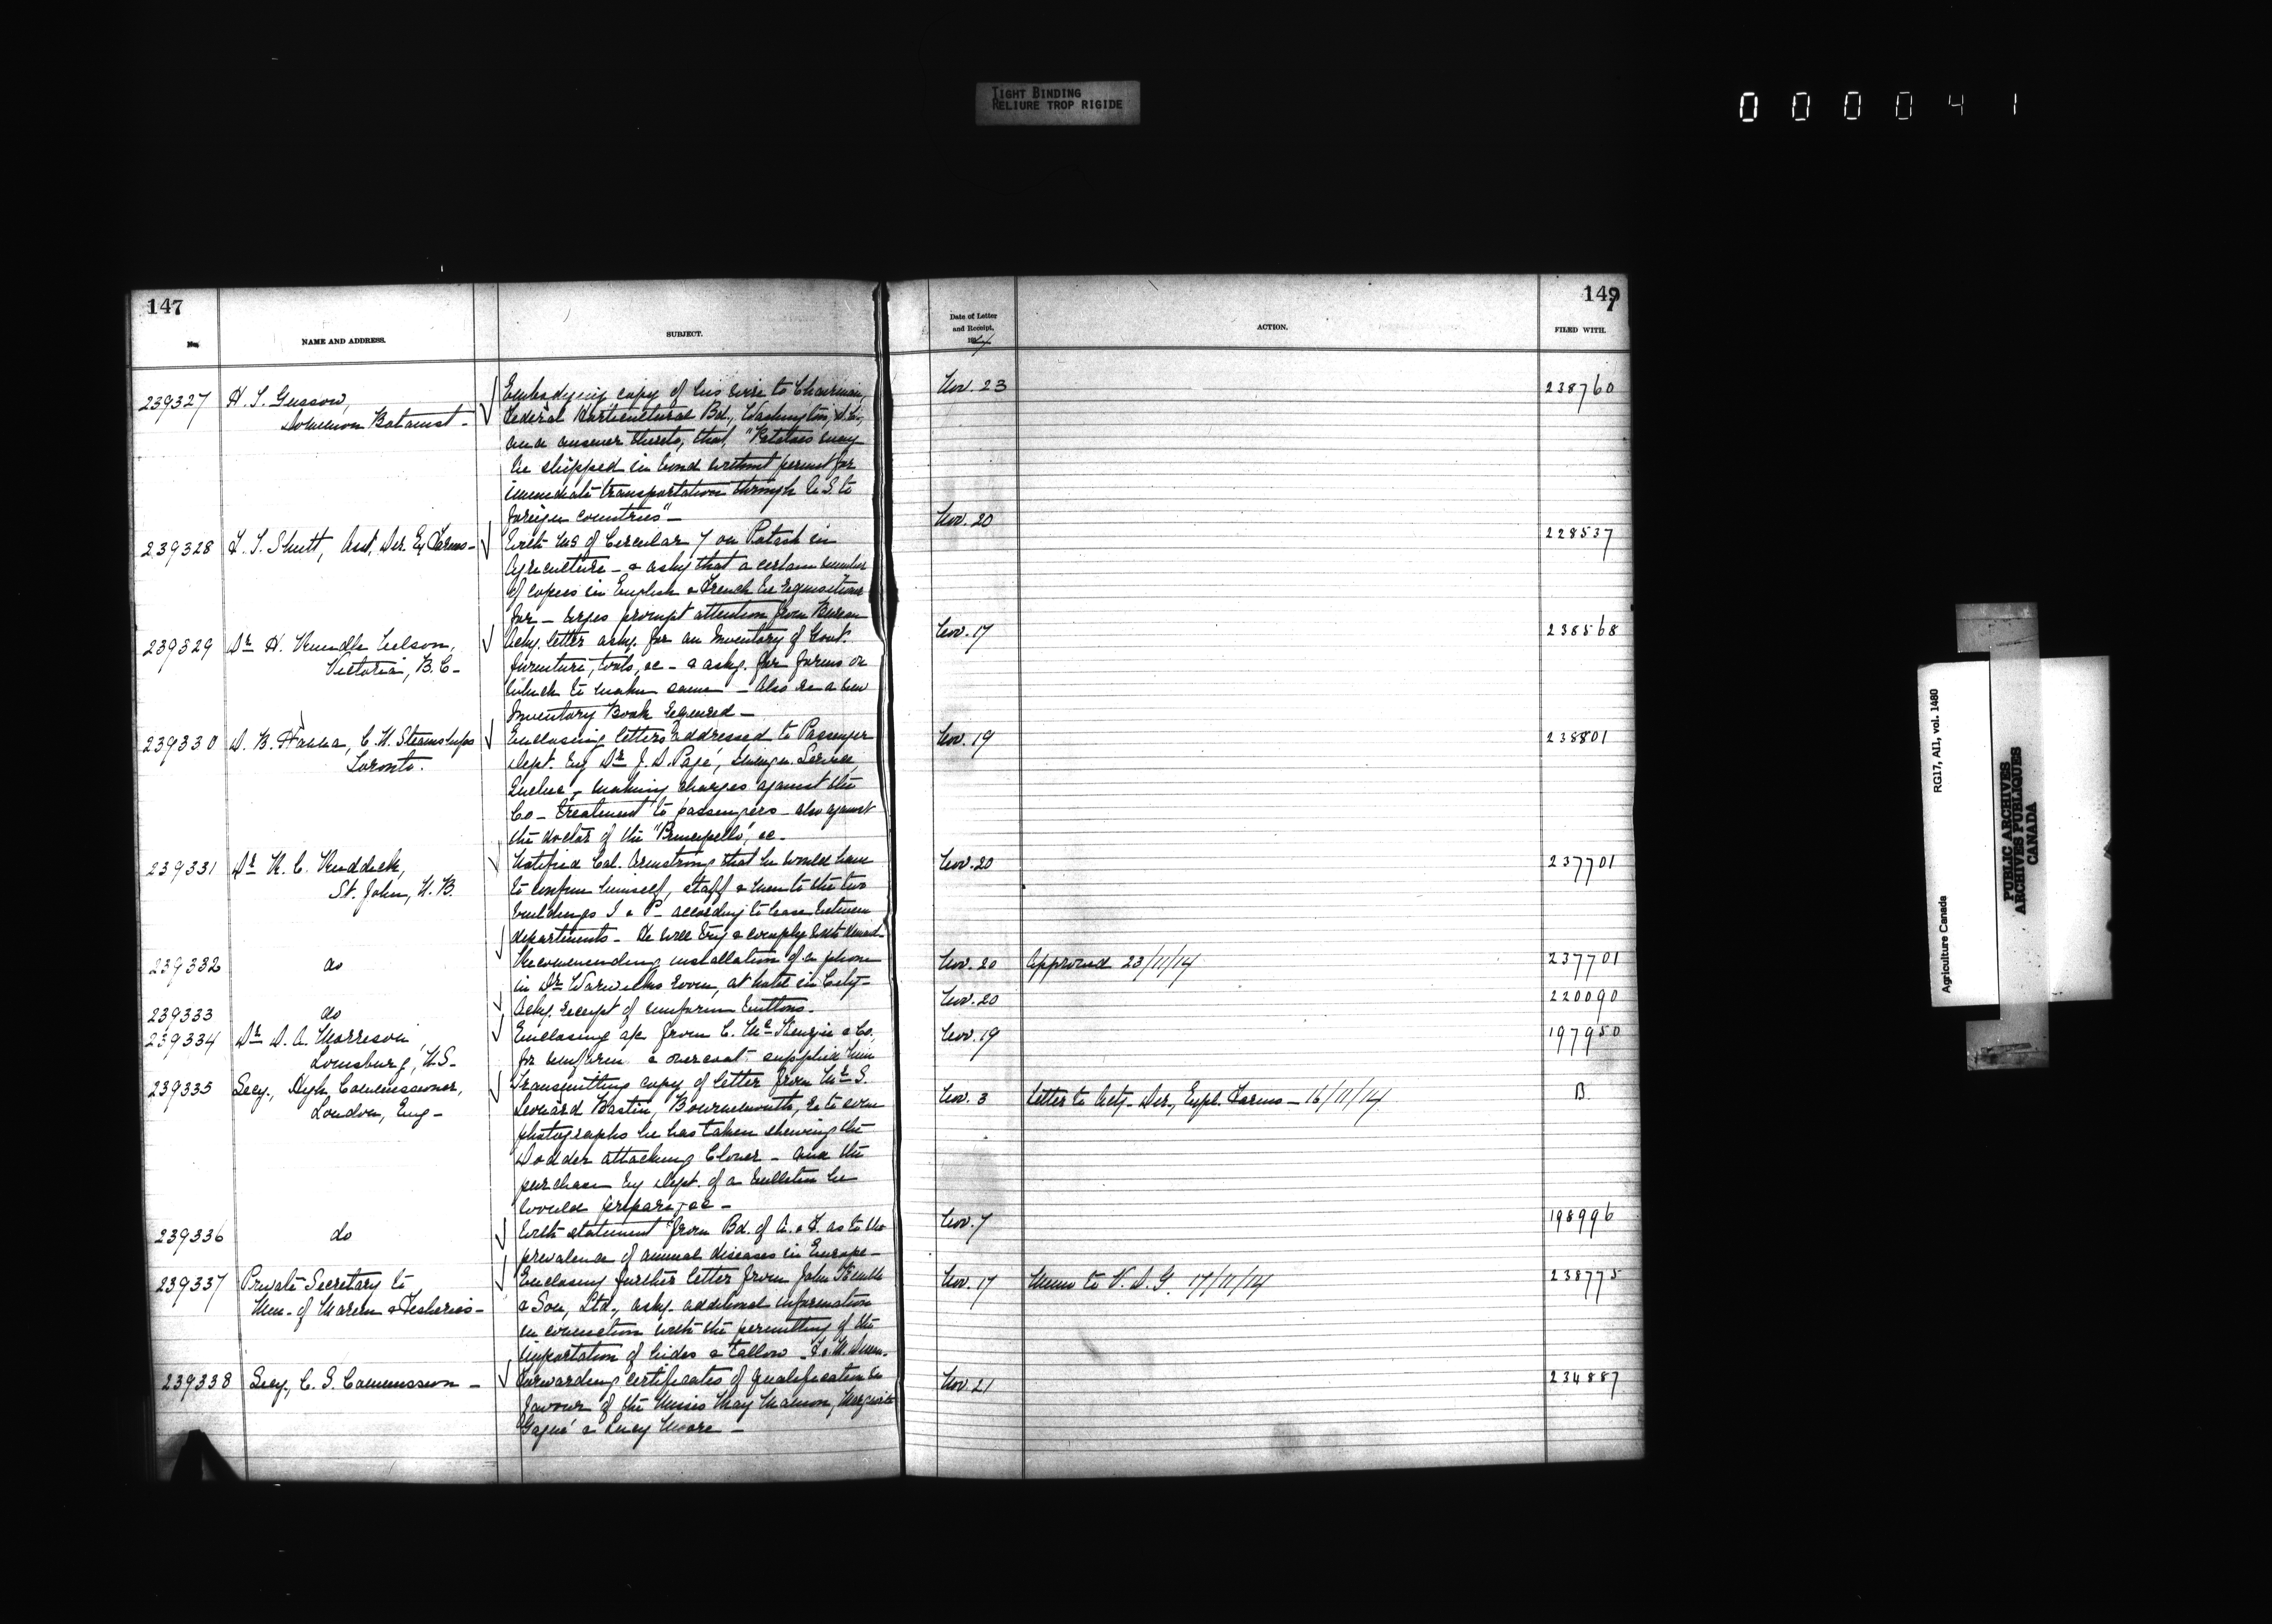 TIGHT BINDING
RELIURE TROP RIGIDE
000041
147
No.
NAME AND ADDRESS.
SUBJECT.
239327
H. T. Gussow,
Dominion Botanist -
Embodying copy of his wire to Chairman,
Federal Horticultural Bd., Washington, D.C.,
and answer thereto, that, "Potatoes may
be shipped in bond without permit for
immediate transportation through U.S. to
foreign countries" -
239328
F. T. Shutt, Asst. Dir. Ex Farms -
With MS of Circular 7 on Potash in
Agriculture - & askg that a certain number
of copies in English & French be requisitioned
for - urges prompt attention from Bureau
239329
Dr H. Rundle Nelson,
Victoria, B.C -
Ackg. letter askg. for an Inventory of Govt.
furniture, tools, &c - & askg. for forms on
which to make same - Also re a new
Inventory Book required -
239330
D. B. Hanna, C. N. Steamships
Toronto.
Enclosing letters addressed to Passenger
Dept. by Dr J. D. Pagé, Immign. Service,
Quebec, making charges against the
Co - treatment to passengers - also against
the doctor of the "Principello", &c -
239331
Dr W. C. Ruddick,
St. John, N.B.
Notified Col. Armstrong that he would have
to confine himself, staff & men to the two
buildings I & P according to lease between
departments - He will try & comply with
239332
do
Recommending installation of a phone
in Dr Warwicks room, at hotel in City -
239333
do
Ackg. receipt of uniform buttons -
239334
Dr D. A. Morrison,
Louisburg, N.S -
Enclosing a/c from C. McKenzie & Co.
for uniform & overcoat supplied him
239335
Secy., High Commissioner,
London, Eng -
Transmitting copy of letter from Mr S.
Leonard Bastin, Bournemouth, re to some
photographs he has taken shewing the
Dodder attacking Clover - and the
purchase by Dept. of a bulletin he
would prepare, &c -
239336
do
With statement from Bd. of A. & F. as to the
prevalence of animal diseases in Europe -
239337
Private Secretary to
Min - of Marine & Fisheries -
Enclosing further letter from John Kemble
& Son, Ltd., askg. additional information
in connection with the permitting of the
importation of hides & tallow -
239338
Secy., C. S. Commission -
Forwarding certificates of qualification in
favour of the Misses May Malmon, Marguerite
Gagné & Lucy Moore -
149
7
Date of Letter
and Receipt,
191 4
ACTION.
FILED WITH.
Nov. 23
238760
Nov. 20
228537
Nov. 17
238568
Nov. 19
238801
Nov. 20
237701
Nov. 20
Approved 23/11/14
237701
Nov. 20
220090
Nov. 19
197950
Nov. 3
Letter to Actg - Dir., Expl. Farms - 16/11/14
B
Nov. 7
198996
Nov. 17
Memo to V. D. G. 17/11/14
238775
Nov. 21
234887
Agriculture Canada
RG17, AI1, vol. 1480
PUBLIC ARCHIVES
ARCHIVES PUBLIQUES
CANADA